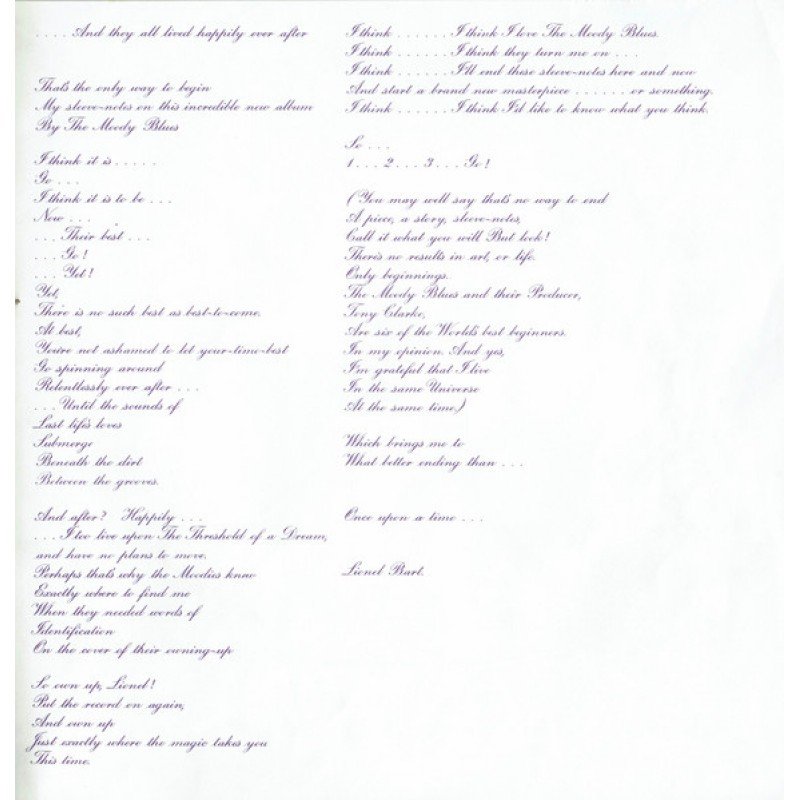 . . . . And they all lived happily ever after
That's the only way to begin
My sleeve-notes on this incredible new album
By The Moody Blues
I think it is . . . . .
Go . . .
I think it is to be . . .
Now . . .
. . . Their best . . .
. . . Go !
. . . Yet !
Yet,
There is no such best as best-to-come.
At best,
You're not ashamed to let your-time-best
Go spinning around
Relentlessly ever after . . .
. . . Until the sounds of
Last life's loves
Submerge
Beneath the dirt
Between the grooves.
And after? Happily . . .
. . . I too live upon The Threshold of a Dream,
and have no plans to move.
Perhaps that's why the Moodies knew
Exactly where to find me
When they needed words of
Identification
On the cover of their owning-up
So own up, Lionel !
Put the record on again,
And own up
Just exactly where the magic takes you
This time.
I think . . . . . . . I think I love The Moody Blues.
I think . . . . . . . I think they turn me on . . .
I think . . . . . . . I'll end these sleeve-notes here and now
And start a brand new masterpiece . . . . . . or something.
I think . . . . . . . I think I'd like to know what you think.
So . . .
1 . . . 2 . . . 3 . . . Go !
( You may well say that's no way to end
A piece, a story, sleeve-notes,
Call it what you will But look !
There's no results in art, or life.
Only beginnings.
The Moody Blues and their Producer,
Tony Clarke,
Are six of the World's best beginners.
In my opinion. And yes,
I'm grateful that I live
In the same Universe
At the same time.)
Which brings me to
What better ending than . . .
Once upon a time . . .
Lionel Bart.